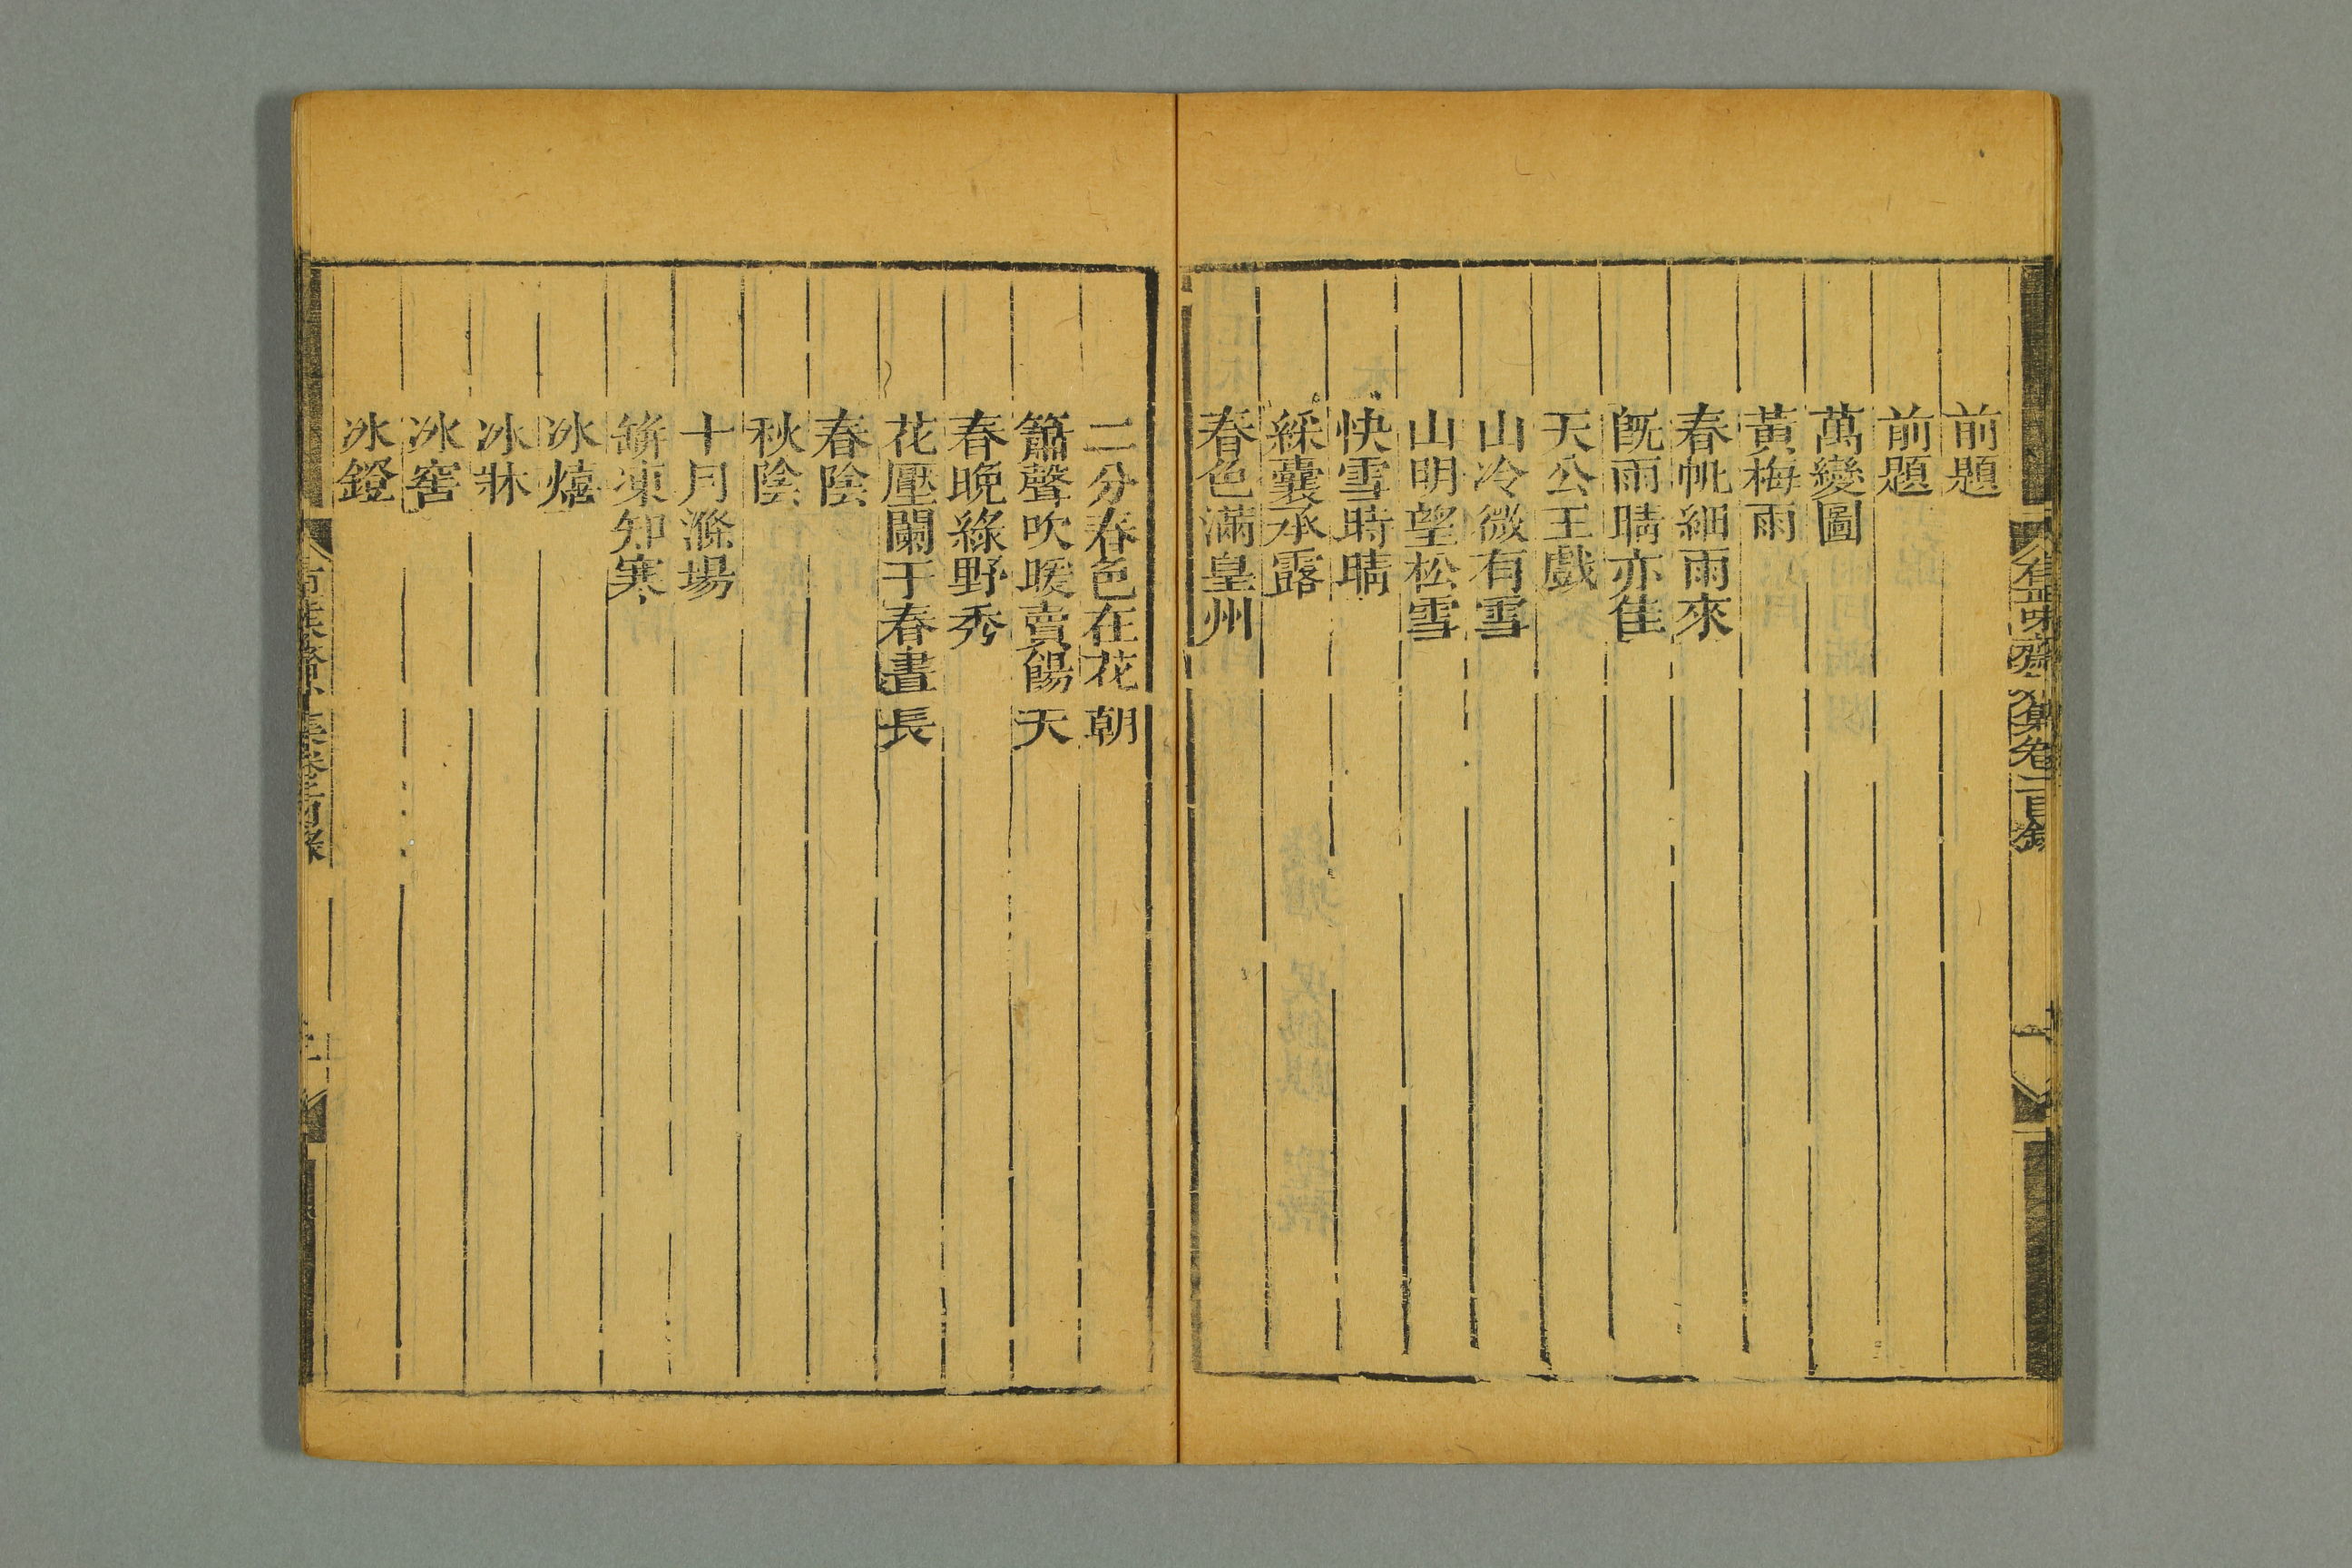 前題
前題
萬變圖
黃梅雨
春帆細雨來
旣雨晴亦佳
天公玉戲
山冷微有雪
山明望松雪
快雪時晴
綵囊承露
春色滿皇州
二分春色在花朝
簫聲吹暖賣餳天
春晚綠野秀
花壓闌干春晝長
春陰
秋陰
十月滌場
缾凍知寒
冰嬉
冰牀
冰窖
冰鐙